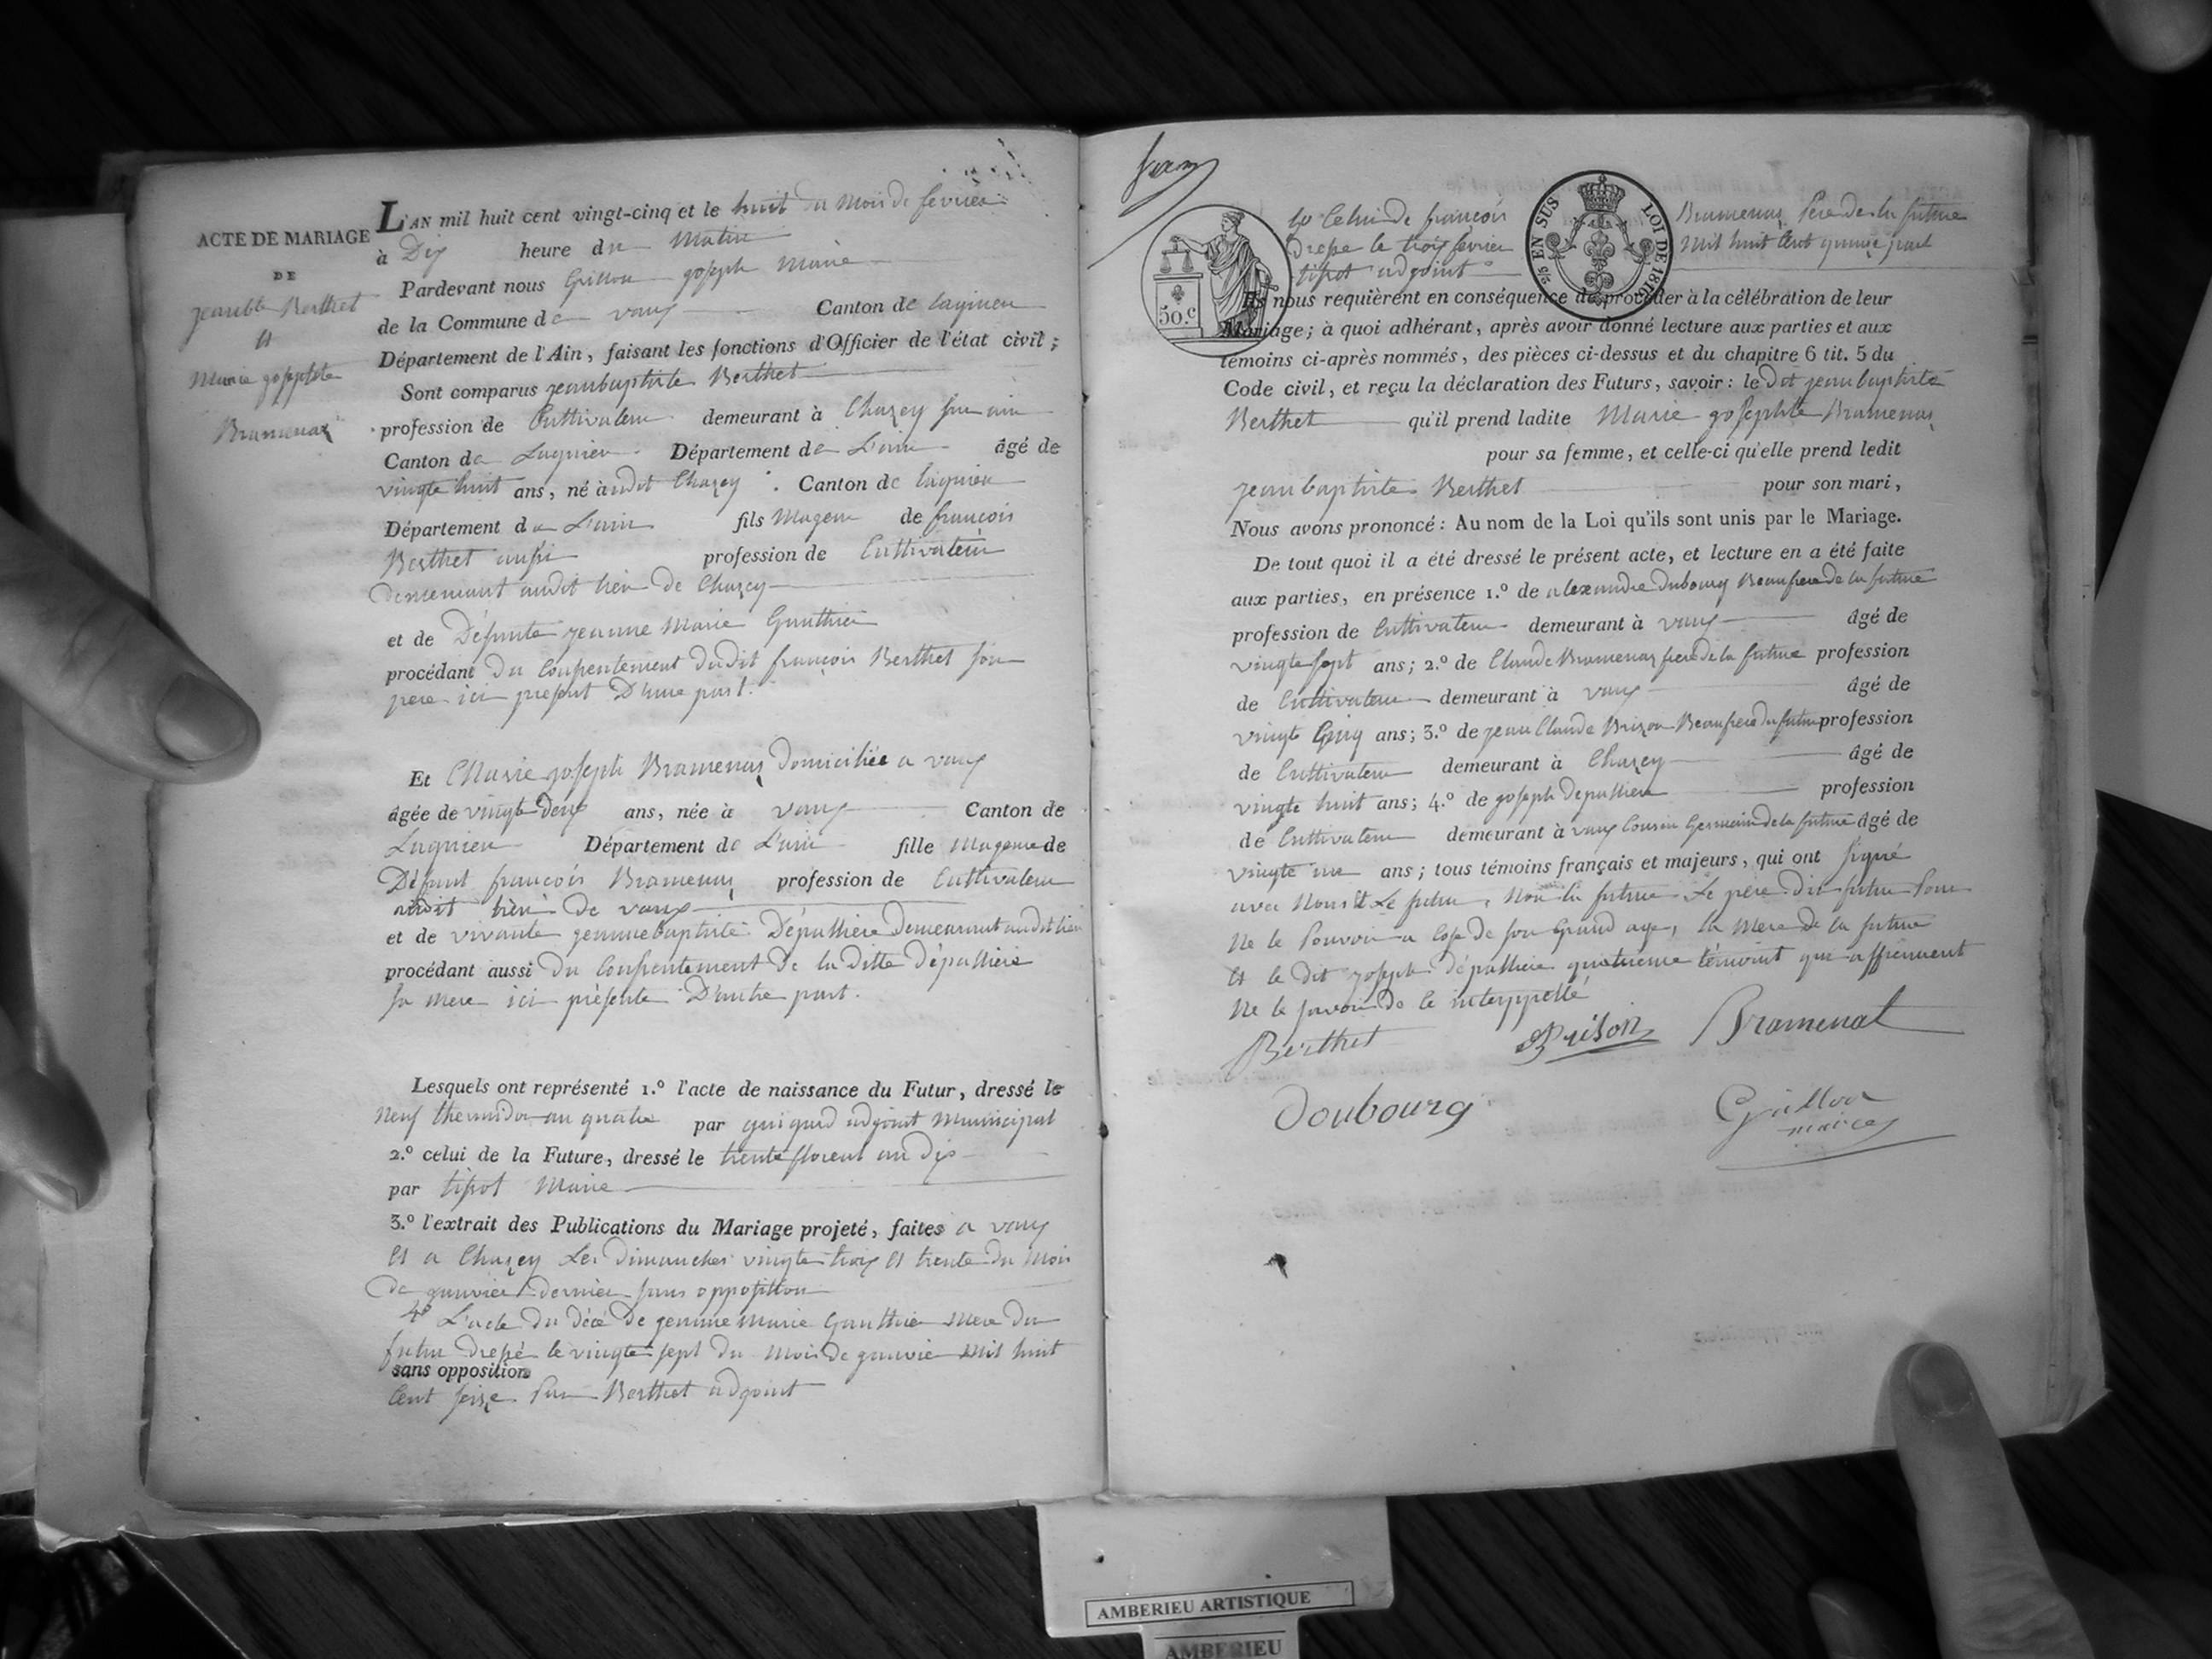 ACTE DE MARIAGE
DE
jeanbte Berthet
et
Marie gosephte
Bramenaz
L'AN mil huit cent vingt-cinq et le huit du mois de fevrier
à Dix heure du Matin
Pardevant nous Grillon goseph Maire
de la Commune de vaux Canton de lagnieu
Département de l'Ain, faisant les fonctions d'Officier de l'état civil;
Sont comparus jeanbaptiste Berthet
profession de Cultivateur demeurant à Chazey sur ain
Canton de Lagnieu Département de L'ain âgé de
vingte huit ans, né à udit Chazey. Canton de lagnieu
Département de L'ain fils Mageur de françois
Berthet aussi profession de Cultivateur
Demeurant audit lieu de Chazey
et de Défunte jeanne Marie Gauthier
procédant du Consentement dudit françois Berthet son
pere ici present D'une part.
Et Marie goseph Bramenaz Domiciliée a vaux
âgée de vingte Deux ans, née à vaux Canton de
Lagnieu Département de L'ain fille Mageure de
Défunt françois Bramenaz profession de Cultivateur
audit lieu de vaux
et de vivante jeannebaptiste Dépalliere Demeurant audit lieu
procédant aussi Du Consentement De la ditte Dépalliere
sa mere ici présente D'autre part.
Lesquels ont représenté 1.º l'acte de naissance du Futur, dressé le
Neuf thermidor an quatre par guigard adgoint Municipal
2.º celui de la Future, dressé le trente floreal an dix
par tissot Maire
3.º l'extrait des Publications du Mariage projeté, faites a vaux
et a Chazey Les dimanches vingte trois et trente du Mois
de ganvier dernier sans oppossition
4º L'acte du décé De jeanne Marie Gauthier Mere du
futur dressé le vingte sept du Mois de ganvier Mil huit
sans opposition
Cent seize Par Berthet adgoint
5º Celui de françois Bramenaz Pere de la future
Dressé le trois fevrier Mil huit Cent quinze par
tissot adgoint
50.c
2/5 EN SUS
LOI DE 1816
Ils nous requièrent en conséquence de procéder à la célébration de leur
Mariage; à quoi adhérant, après avoir donné lecture aux parties et aux
témoins ci-après nommés, des pièces ci-dessus et du chapitre 6 tit. 5 du
Code civil, et reçu la déclaration des Futurs, savoir: le Dit jeanbaptiste
Berthet qu'il prend ladite Marie gosephte Bramenaz
pour sa femme, et celle-ci qu'elle prend ledit
jeanbaptiste Berthet pour son mari,
Nous avons prononcé: Au nom de la Loi qu'ils sont unis par le Mariage.
De tout quoi il a été dressé le présent acte, et lecture en a été faite
aux parties, en présence 1.º de alexandre Dubourg Beaufrere de la future
profession de Cultivateur demeurant à vaux âgé de
vingte sept ans; 2.º de Claude Bramenaz frere de la future profession
de Cultivateur demeurant à vaux âgé de
vingte Cinq ans; 3.º de jean Claude Brizon Beaufrere du futur profession
de Cultivateur demeurant à Chazey âgé de
vingte huit ans; 4.º de goseph Depalliere profession
de Cultivateur demeurant à vaux Cousin Germain de la future âgé de
vingte un ans; tous témoins français et majeurs, qui ont signé
avec Nous et Le futur, Non la future Le pere du futur Pour
Ne le Pouvoir a Cose de son Grand age, la Mere de la future
et le dit joseph dépalliere quatrieme témoint qui affirment
Ne le savoir De le interppellé
Berthet Brison Bramenat
Doubourg Grillon
maire
AMBERIEU ARTISTIQUE
AMBERIEU